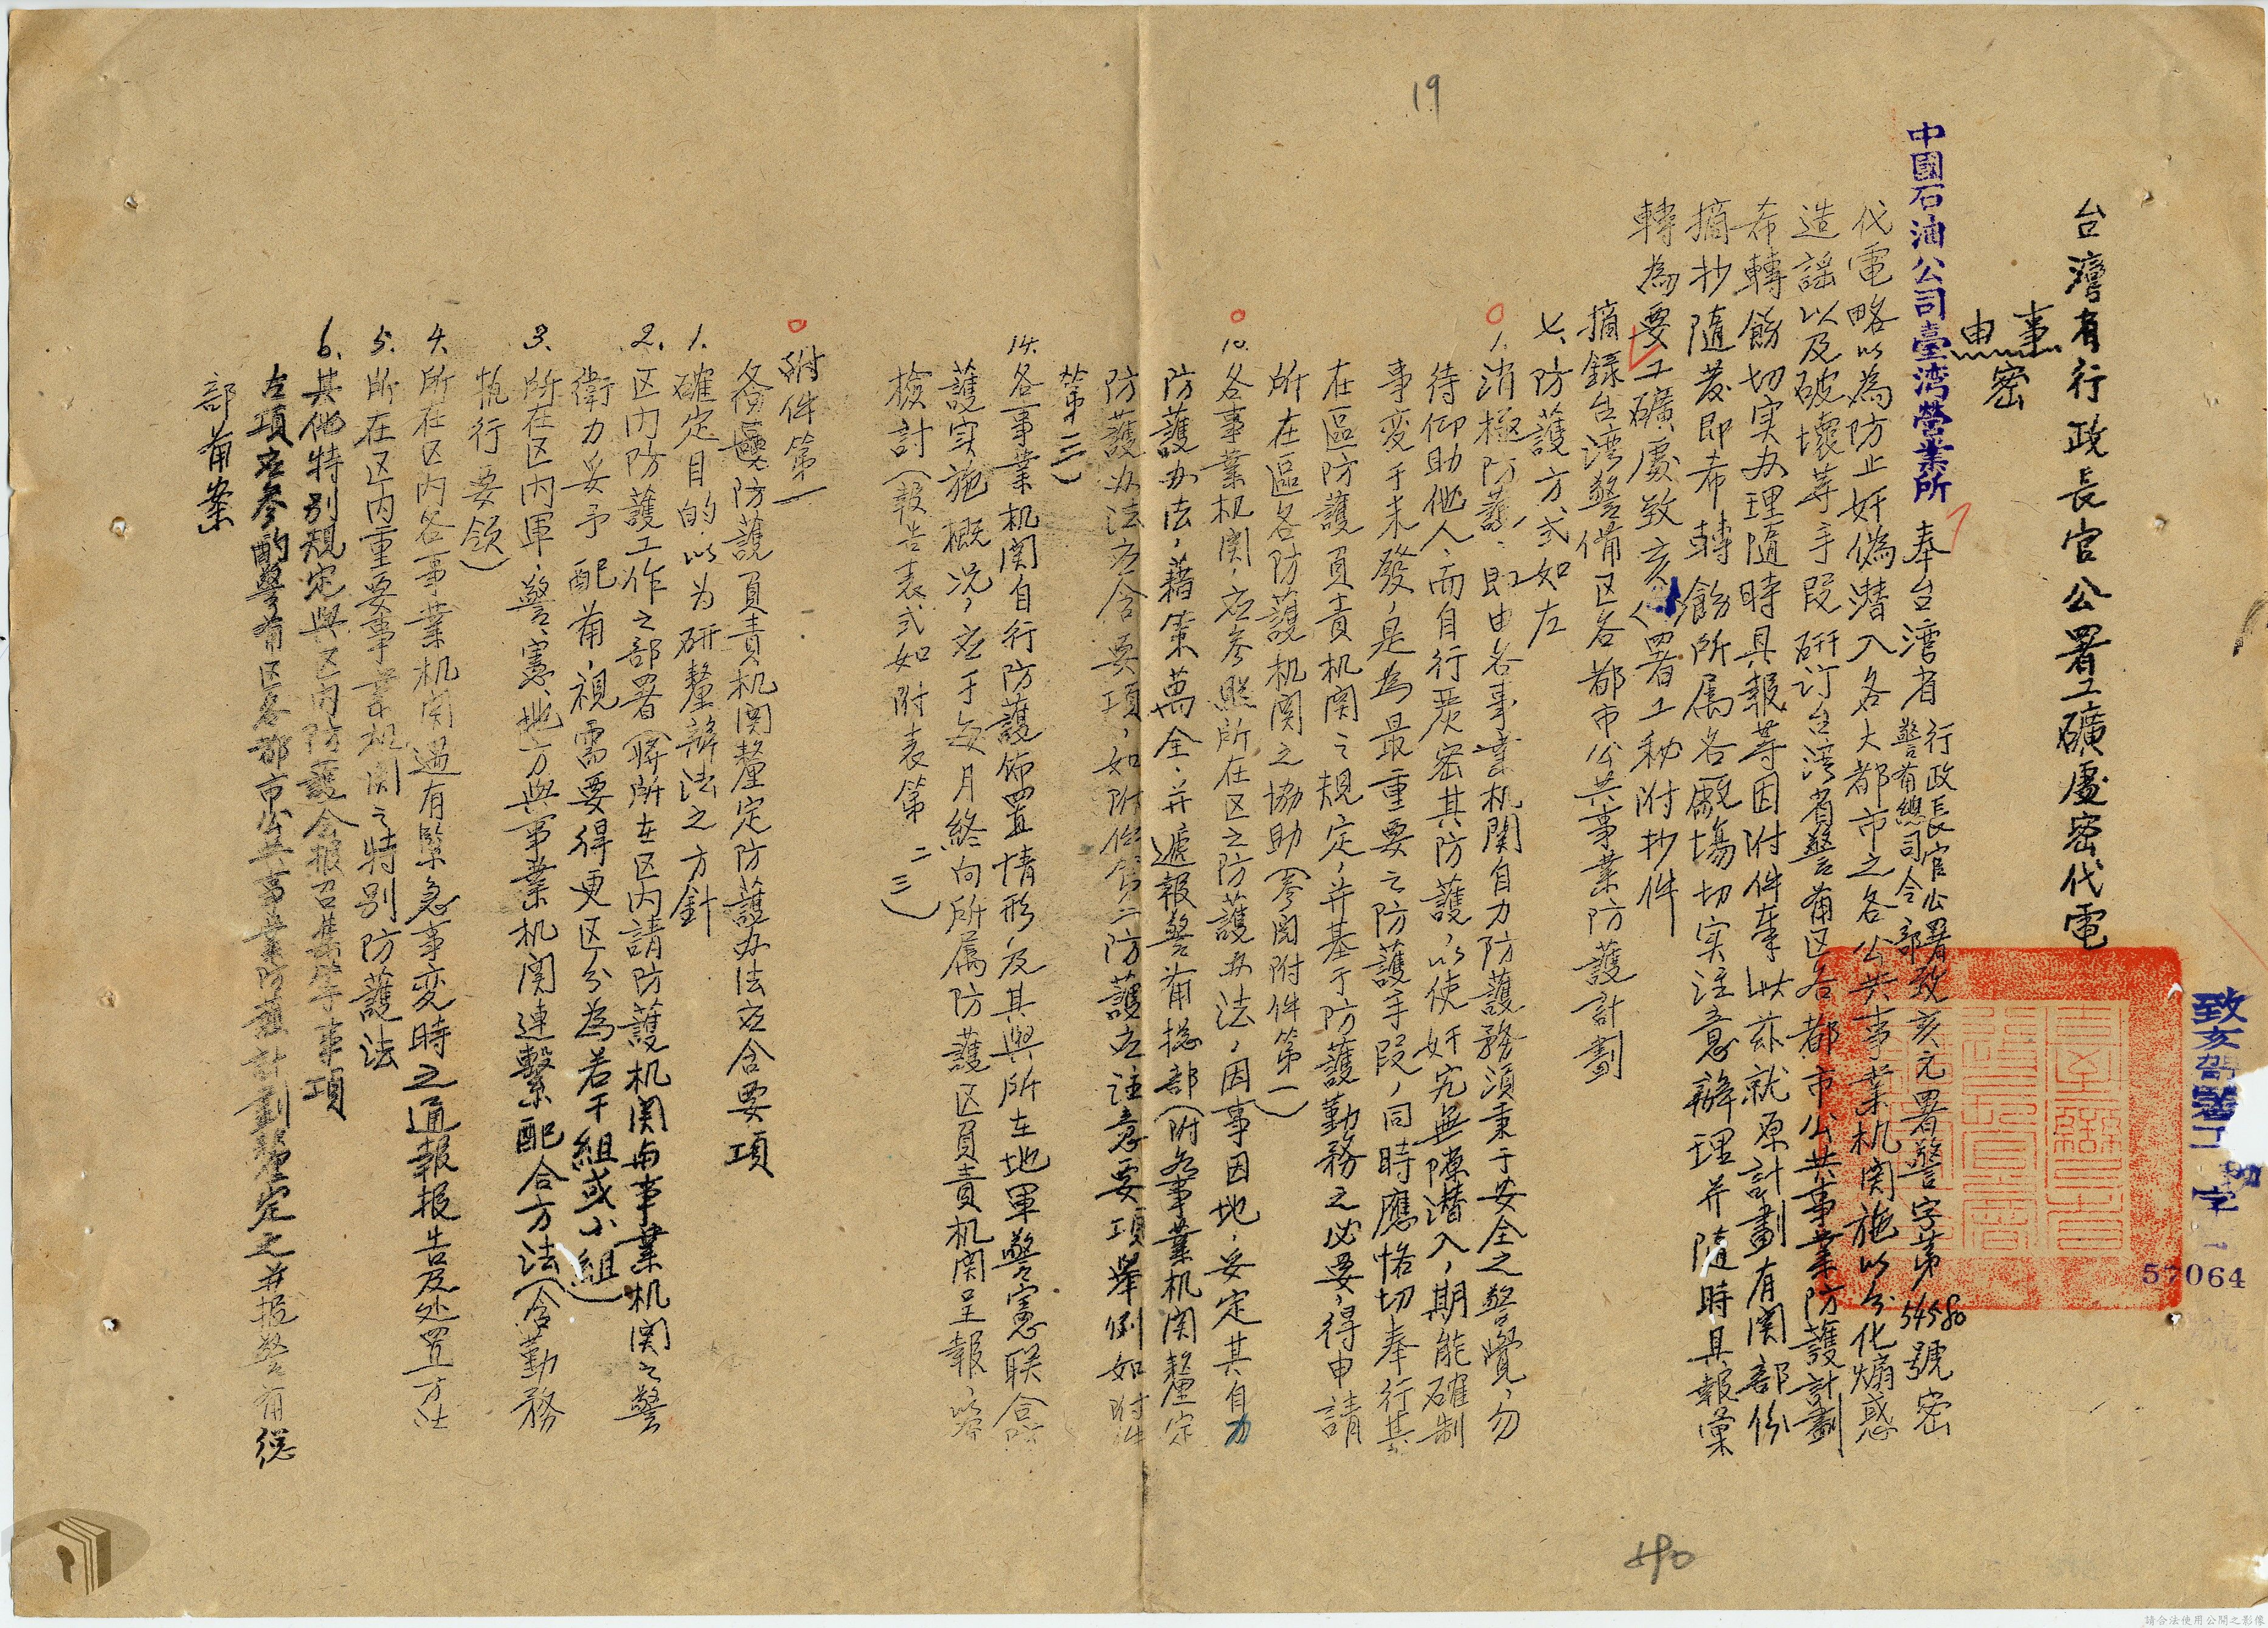 19
台灣省行政長官公署工礦處密代電
致亥
署工
字
57064
事由
密
中國石油公司臺灣營業所
奉台灣省行政長官公署警備總司令部致亥元署警字第54580號密
代電略以為防止奸偽潛入各大都市之各公共事業机関施以分化煽惑
造謠以及破壞等手段研訂台湾省警备区各都市公共事業防護計劃
希轉飭切实办理隨時具報等因附件奉此茲就原計劃有関部份
摘抄隨發即希轉飭所属各厰塲切实注意辦理并隨時具報彙
轉為要工礦處致亥署工秘附抄件
摘錄台湾警備区各都市公共事業防護計劃
七、防護方式如左
1.消極防護、即由各事業机関自力防護務須秉于安全之警覺，勿
待仰助他人、而自行嚴密其防護，以使奸宄無隙潛入，期能確制
事変于未發，是為最重要之防護手段，同時應恪切奉行其
在區防護負責机関之規定，并基于防護勤務之必要，得申請
所在區各防護机関之協助（參閲附件第一）
10.各事業机関，应參照所在区之防護办法，因事因地，妥定其自力
防護办法，藉策萬全、并遞報警备總部（附各事業机関釐定
防護办法应含要項，如附件第二防護应注意要項舉例如附件
第三）
14.各事業机関自行防護佈置情形，及其與所在地軍警憲联合防
護实施概况，应于每月終向所属防護区負責机関呈報，以资
檢討（報告表式如附表第二三）
附件第一
各區防護負責机関釐定防護办法应含要項
1.確定目的以为研釐辦法之方針
2.区内防護工作之部署（將所在区内請防護机関与事業机関之警
衛力妥予配备，視需要得更区分為若干組或小組）
3.所在区内軍、警、憲、地方與事業机関連繫配合方法（含勤務
執行要領）
4.所在区内各事業机関遇有緊急事変時之通報报告及处置方法
5.所在区内重要事業机関之特别防護法
6.其他特别規定與区内防護会报召集等事項
左項应參酌警备区各都市公共事業防護計劃釐定之并报警备總
部备案
490
請合法使用公開之影像